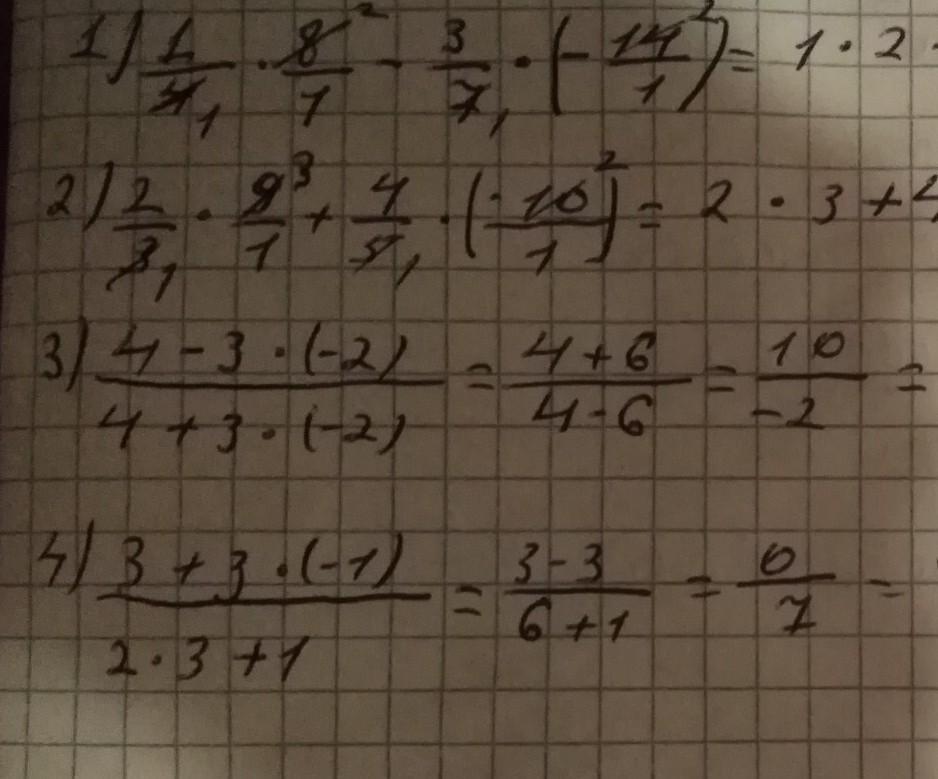 1) 1/4₁ · 8²/1 - 3/7₁ · (- 14²/1) = 1 · 2 -
2) 2/3₁ · 9³/1 + 4/5₁ · (-10²/1) = 2 · 3 + 4
3) 4 - 3 · (-2)/4 + 3 · (-2) = 4 + 6/4 - 6 = 10/-2 =
4) 3 + 3 · (-1)/2 · 3 + 1 = 3 - 3/6 + 1 = 0/7 =